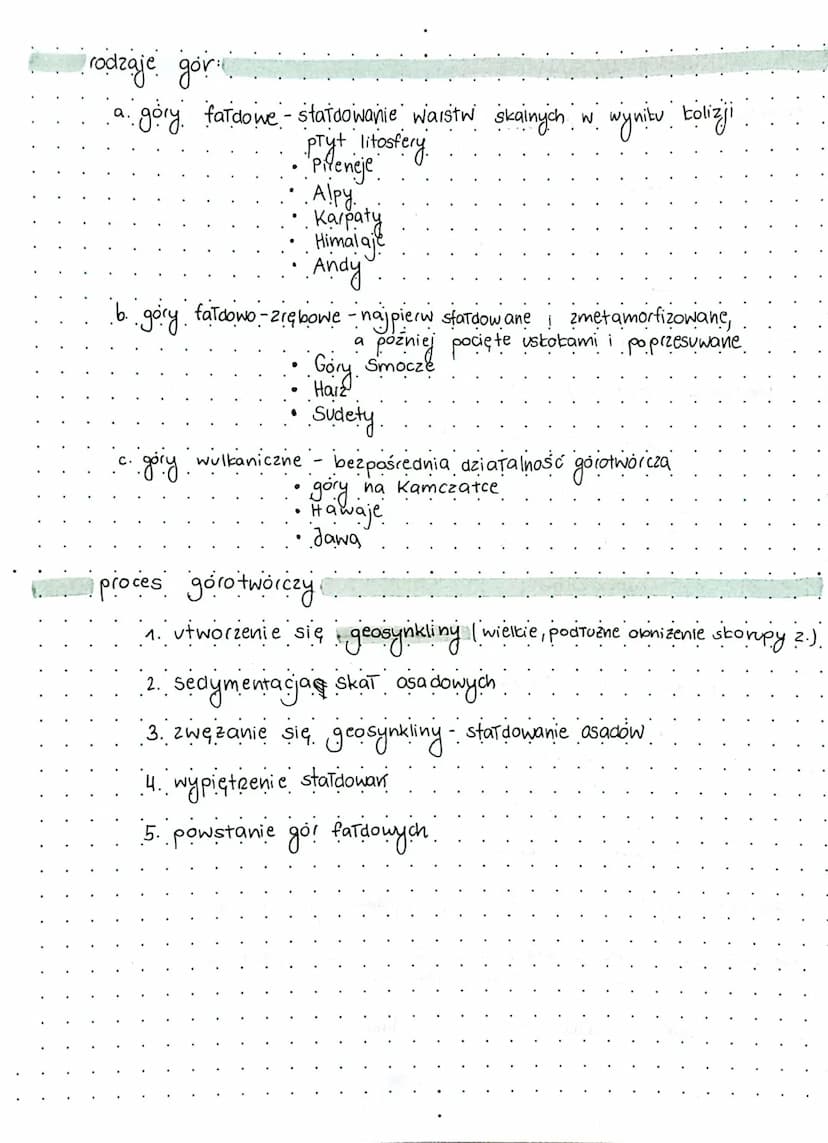 rodzaje gór:
a. góry fałdowe - sfałdowanie warstw skalnych w wyniku kolizji
płyt litosfery
• Pireneje
• Alpy
• Karpaty
• Himalaje
• Andy
b. góry fałdowo-zrębowe - najpierw sfałdowane i zmetamorfizowane,
a później pocięte uskokami i poprzesuwane
• Góry Smocze
• Harz
• Sudety
c. góry wulkaniczne - bezpośrednia działalność górotwórcza
• góry na Kamczatce
• Hawaje
• Jawa
proces górotwórczy
1. utworzenie się geosynkliny (wielkie, podłużne obniżenie skorupy z.)
2. sedymentacja skał osadowych
3. zwężanie się geosynkliny - sfałdowanie osadów
4. wypiętrzenie sfałdowań
5. powstanie gór fałdowych